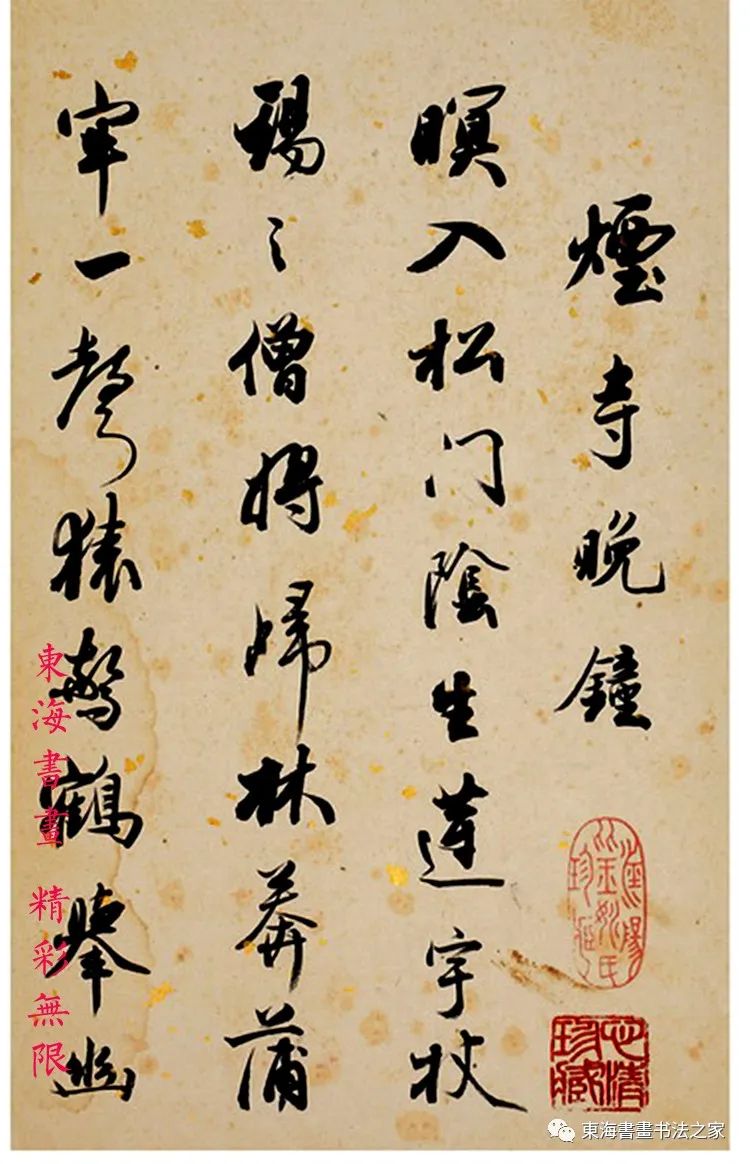 煙寺晚鐘
暝入松門陰生蓮宇杖
錫之僧將歸林莽蒲
牢一聲猿驚鶴舉幽
心清珍藏
東海書畫 精彩無限
東海書畫书法之家